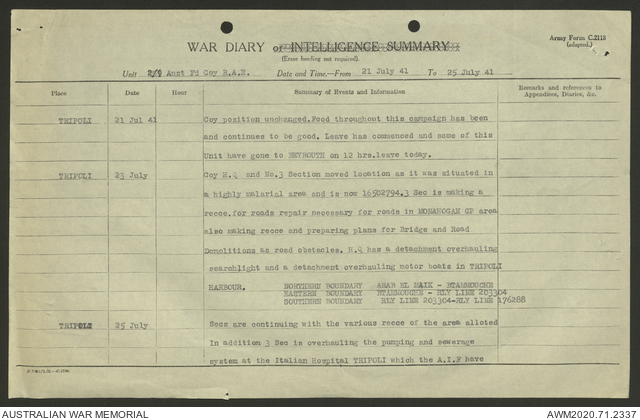 Army Form C.2118
(adapted.)
WAR DIARY or INTELLIGENCE SUMMARY
(Erase heading not required).
Unit 2/9 Aust Fd Coy R.A.E. Date and Time.—From 21 July 41 To 25 July 41
Place Date Hour Summary of Events and Information Remarks and references to Appendices, Diaries, &c.
TRIPOLI 21 Jul 41 Coy position unchanged.Food throughout this campaign has been
and continues to be good. Leave has commenced and some of this
Unit have gone to BEYROUTH on 12 hrs.leave today.
TRIPOLI 23 July Coy H.Q and No.3 Section moved location as it was situated in
a highly malarial area and is now 16502794.3 Sec is making a
recce.for roads repair necessary for roads in MONAHOGAN GP area
also making recce and preparing plans for Bridge and Road
Demolitions as road obstacles. H.Q has a detachment overhauling
searchlight and a detachment overhauling motor boats in TRIPOLI
HARBOUR. NORTHERN BOUNDARY ARAB EL MAIK - BTARMOUCHE
EASTERN BOUNDARY BTARMOUCHE - RLY LINE 203304
SOUTHERN BOUNDARY RLY LINE 203304-RLY LINE 176288
TRIPOLI 25 July Secs are continuing with the various recce of the area alloted
In addition 3 Sec is overhauling the pumping and sewerage
system at the Italian Hospital TRIPOLI which the A.I.F have
AUSTRALIAN WAR MEMORIAL AWM2020.71.2337